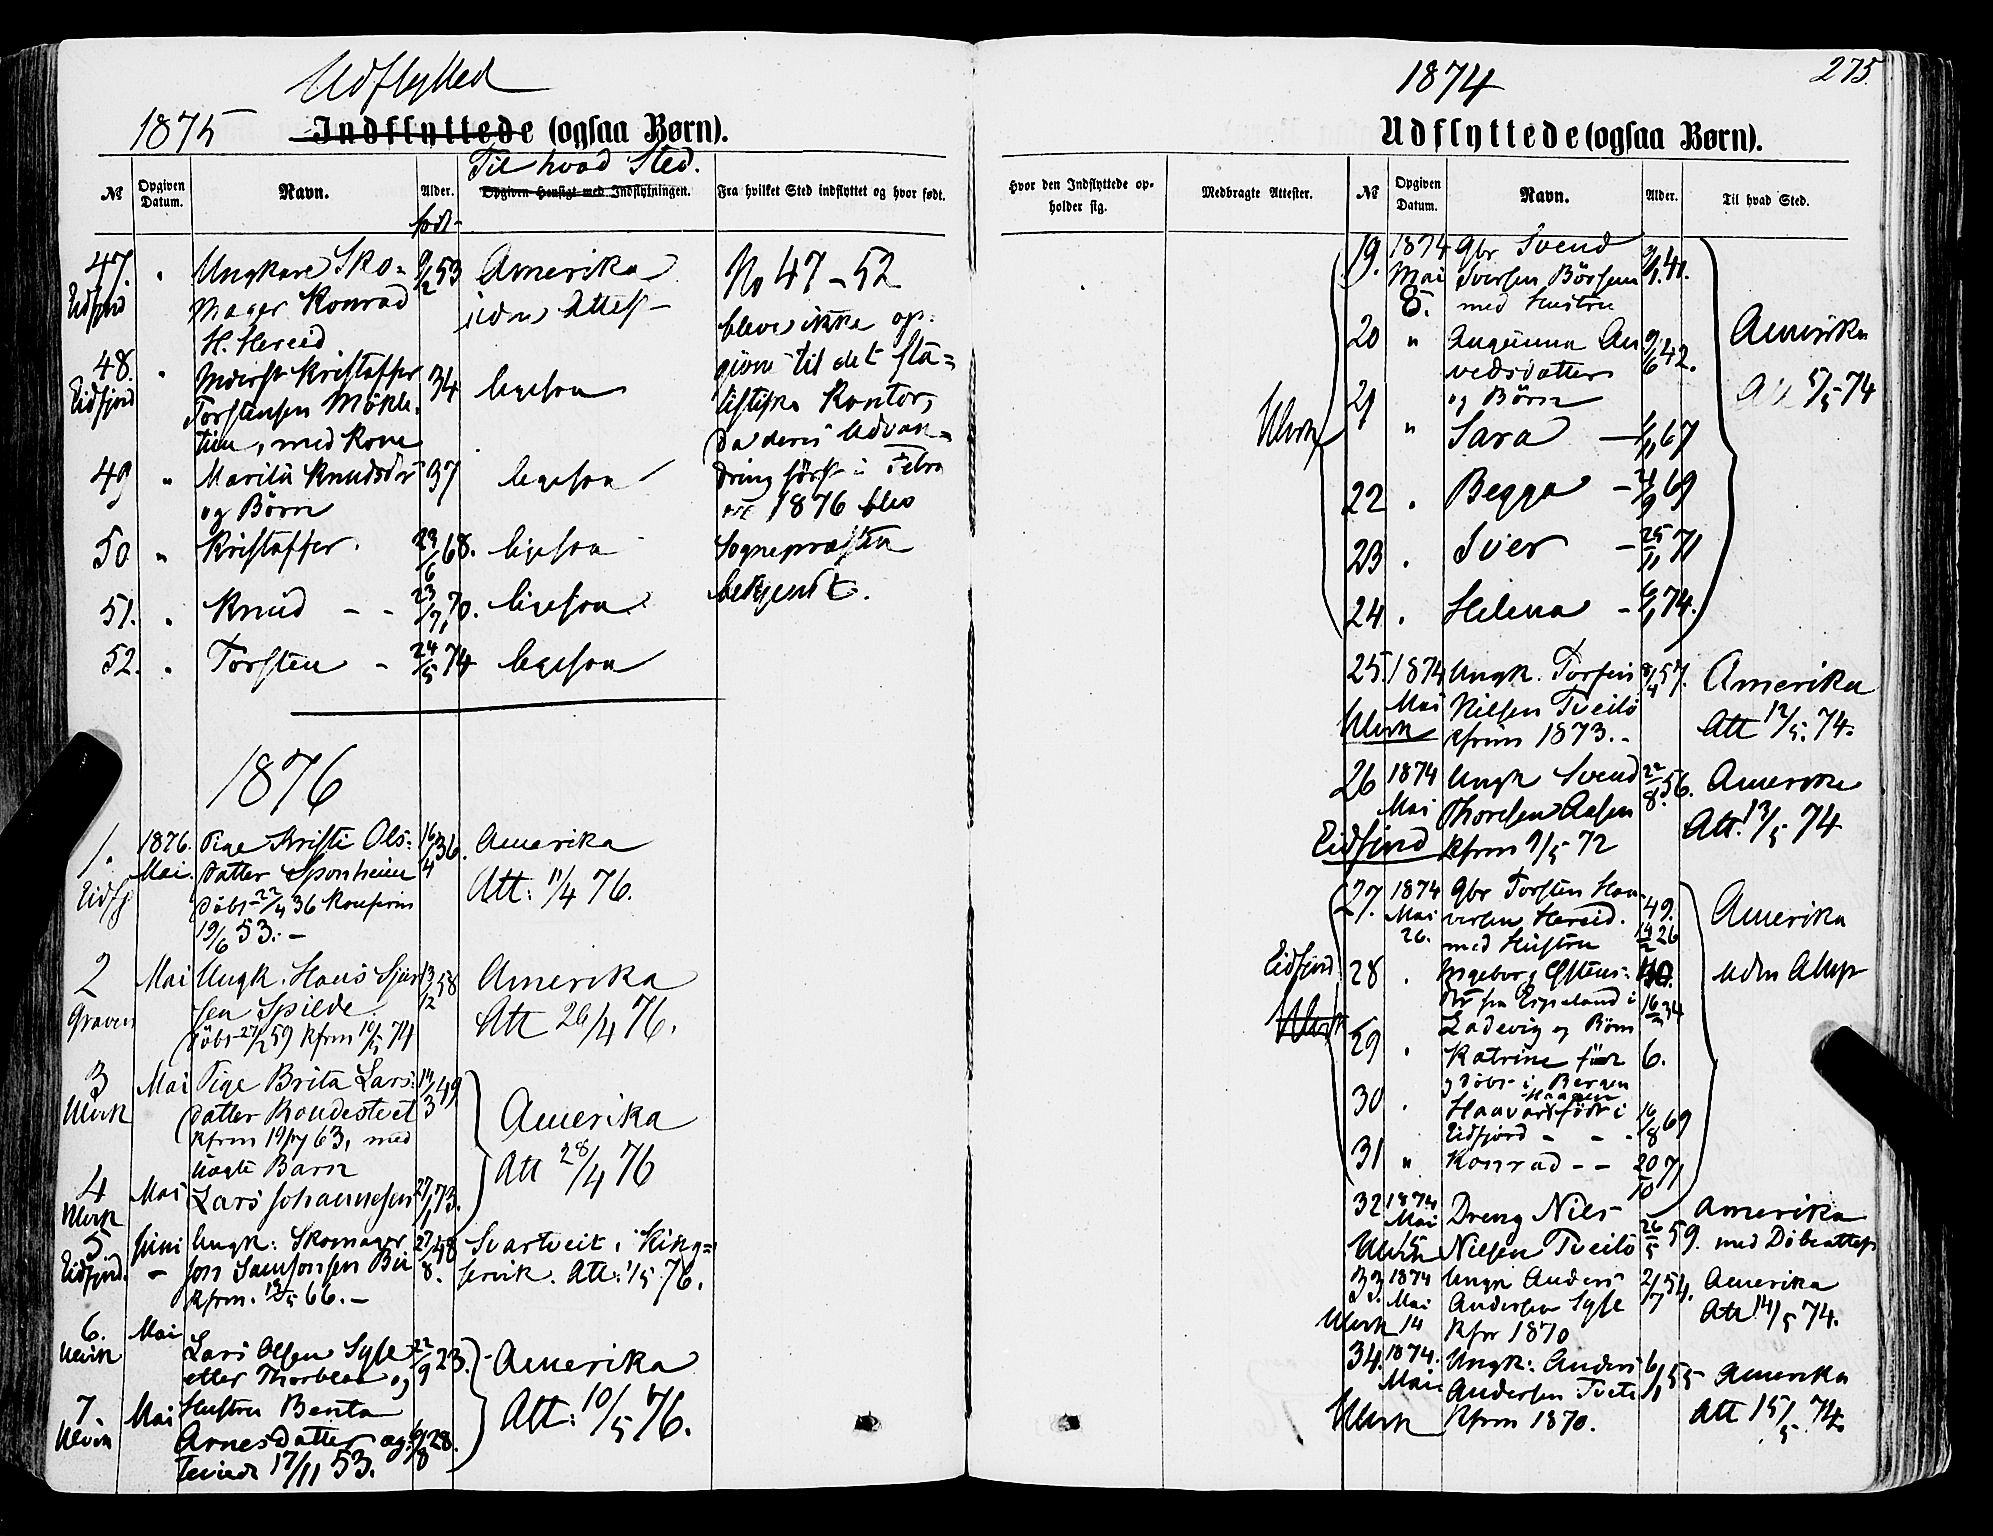 Udflytted
1875 Indflyttede (ogsaa Børn).
Til hvad Sted.
№ Opgiven Datum. Navn. Alder. Opgiven Hensigt med Indflytningen. Fra hvilket Sted indflyttet og hvor født.
født
47. " Ungkare Sko= 9/2 53 Amerika No 47-52
Eidfjord mager Konrad uden Attest bleve ikke op=
H. Hereid
givne til det sta=
48. " Kristoffer 34 ligesom
Eidfjord Torstensen tistiske Kontor,
med Kone da deres Udvan=
49 " Marita Knudsdtr 37 ligesom dring først i Febr
og Børn 1876 blev
50 " Kristoffer. 29/6 68. ligesom Sognepræsten
51. " Knud - - 23/7 70. ligesom bekjendt.
52. " Torsten - 24/5 74 ligesom
1876
1. 1876. Pige Kristi Ols= 16/4 36. Amerika
Eidfj Mai. datter Sponheim Att: 11/4 76.
døbt 22/4 36 Konfirm
19/6 53. -
2 Mai Ungk. Hans Sjur 13/2 58 Amerika
Graven sen Spilde. Att 26/4 76.
døbt 27/2 59 Kfrm 10/5 74
3 Mai Pige Brita Lars= 14/3 49
Ulvik datter Rondestveit Amerika
Kfrm 63, med Att 28/4 76
uægte Barn
4 Mai Lars Johannesen 27/1 73.
Ulvik
5 Juni Ungk: Skomager 27/8 48 Svartveit i King=
Eidfjord. - Samsonsen servik. Att: 1/5 76.
Kfrm. 13/5 66. -
6. Mai Lars Olsen Syse 22/9 23. Amerika
Ulvik etter Thorbløn og
7. Mai Hustru Benta Att: 10/5 76.
Ulvik Arnesdatter æg: 6/8 28.
teviede 17/11 53.
1874 275.
Udflyttede (ogsaa Børn).
Hvor den Indflyttede opholder sig. Medbragte Attester. № Opgiven Datum. Navn. Alder. Til hvad Sted.
19. 1874 Gbr Svend 41.
Mai Sversen Børsem
8. med Hustru
20 " An 9/6 42. Amerika
vedsdatter Att 5/5 - 74
21 og Børn
Ulvik " Sara - 67
22 " Begga - 69
23 " Sver - 25/11 71
24 " Helena - 74.
25. 1874 Ungk. Torfin 8/4 57. Amerika
Mai Nielsen Tveito Att 12/5. 74.
Ulvik Kfrm 1873. -
26 1874 Ungk Svend 22/8 56. Amerika
Mai Thoresen Aasen Att. 13/5 74
Eidfjord Kfrm 9/5 72
27. 1874 Gbr Torsten Haa= 49. Amerika
Mai versen Hereid. 14/2 26
26. med Hustru
Eidfjord 28 " Ingeborg Østens= 40. uden Attest
Dtr fra Espeland i 16/3 34
Ulvik Ladevig og Børn
29 " Katrine født 6.
og døbt i Bergen
30 " Haagen
Haavard født i 16/8 69
Eidfjord - - -
31 " Konrad - - 20/10 71
32 1874 Dreng Niels 26/5 59. Amerika
Mai
Ulvik 15 Nielsen Tveito med Døbeattest
33. 1874 Ungk Anders 2/7 54. Amerika
Mai Andersen Syse Att 14/5 74.
Ulvik 14 Kfr 1870
34. 1874. Ungk: Anders 6/1 55 Amerika
Mai Andersen Tveite Att 15/5. 74.
Ulvik Kfrm 1870.